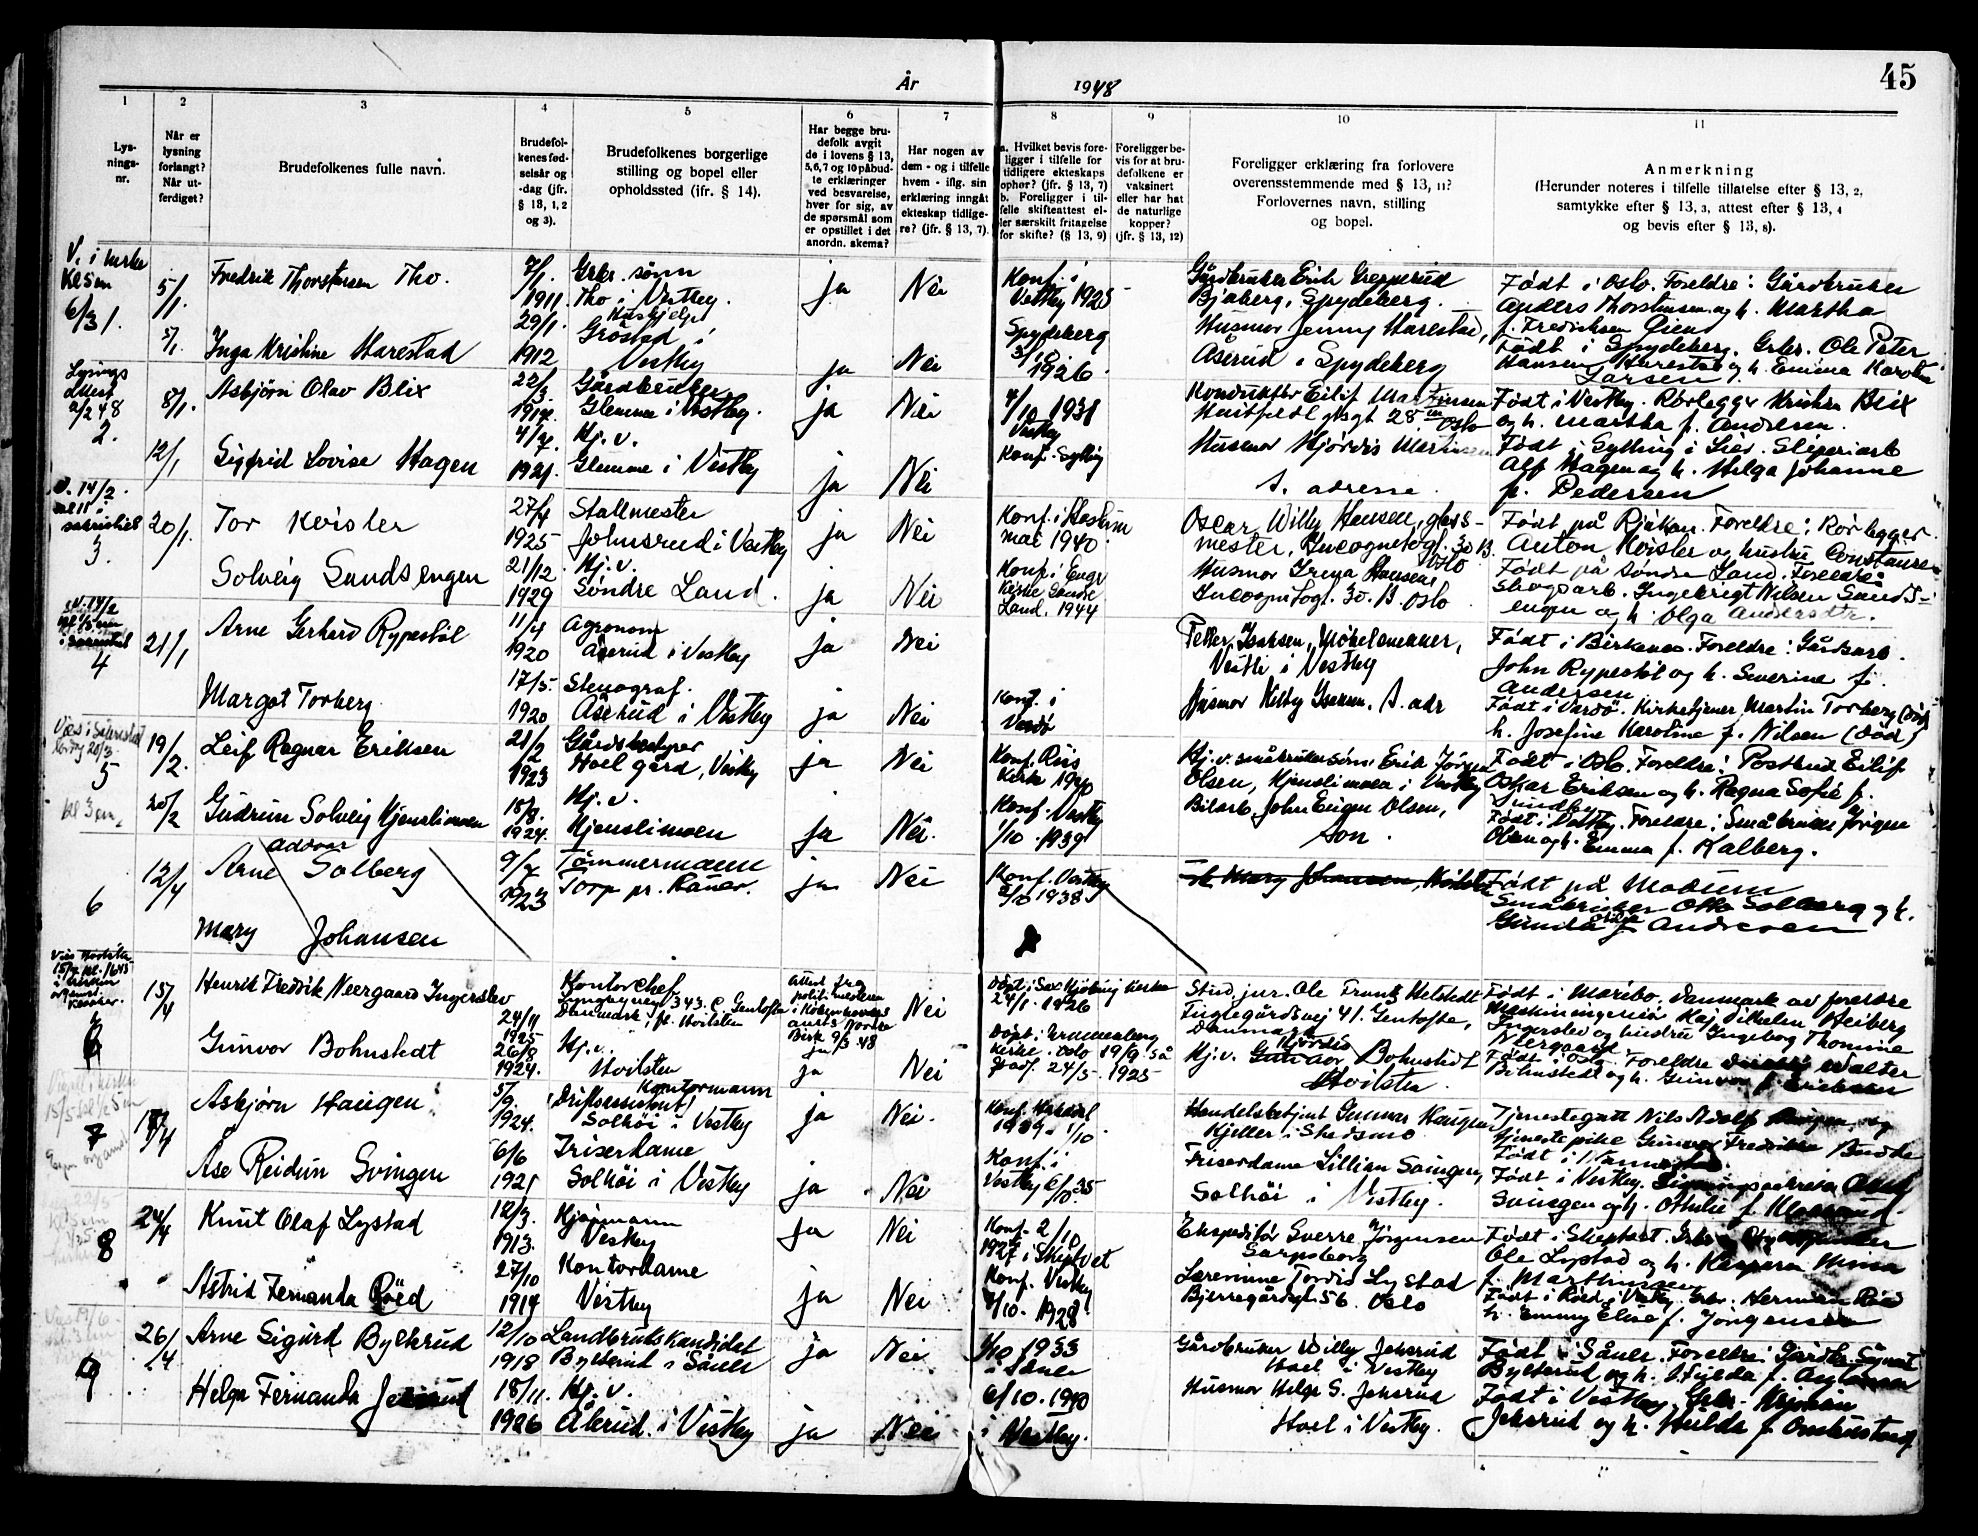 45
År 1948
1
Lys-
nings-
nr.
2
Når er
lysning
forlangt?
Når ut-
ferdiget?
3
Brudefolkenes fulle navn.
4
Brudefol-
kenes fød-
selsår og
-dag (jfr.
§ 13, 1, 2
og 3).
5
Brudefolkenes borgerlige
stilling og bopel eller
opholdssted (ifr. § 14).
6
Har begge bru-
defolk avgit
de i lovens § 13,
5,6,7 og 10 påbud-
te erklæringer
ved besvarelse,
hver for sig, av
de spørsmål som
er opstillet i det
anordn. skema?
7
Har nogen av
dem - og i tilfelle
hvem - iflg. sin
erklæring inngåt
ekteskap tidlige-
re? (jfr. § 13, 7).
8
a. Hvilket bevis fore-
ligger i tilfelle for
tidligere ekteskaps
ophør? (jfr. § 13, 7)
b. Foreligger i til-
felle skifteattest el-
ler særskilt fritagelse
for skifte? (§ 13, 9)
9
Foreligger be-
vis for at bru-
defolkene er
vaksinert
eller har hat
de naturlige
kopper?
(jfr. § 13, 12)
10
Foreligger erklæring fra forlovere
overensstemmende med § 13, 11?
Forlovernes navn, stilling
og bopel.
11
Anmerkning
(Herunder noteres i tilfelle tillatelse efter § 13, 2,
samtykke efter § 13, 3, attest efter § 13, 4
og bevis efter § 13, 8).
V. i kirke
Kl 5 em
6/3 1.
5/1.
Fredrik Thorstensen Tho.
7/1.
1911.
Grbr. sønn
Tho i Vestby.
ja
Nei
Konf. i
Vestby 1925
Gårdbruker Erik Grepperud
Bjaberg, Spydeberg.
Født i Oslo. Foreldre: Gårdbruker
Anders Thorstensen og h. Martha
f. Fredriksen Øiens
5/1.
Inga Kristine Harestad
29/1.
1912
Hushjelp
Grøstad i
Vestby
ja
Nei
Spydeberg
3/10
1926.
Husmor Jenny Harestad,
Åserud i Spydeberg
Født i Spydeberg. Grbr. Ole Peter
Hansen Harestad og h. Emma Karoline
Larsen
Lysings
attest
2/2 48
2.
8/1.
Asbjørn Olav Blix
22/3
1914.
Gårdbruker
Glemme i Vestby.
ja
Nei
4/10 1931
Vestby
Konduktør Eilif Martinsen
Huitfeldtsgt 28 III Oslo
Født i Vestby. Rørlegger Kristian Blix
og h. Martha f. Andersen.
12/1
Sigfrid Lovise Hagen
4/7.
1921
Hj.v.
Glemme i Vestby
ja
Nei
Konf. Sylling
Husmor Hjørdis Martinsen
s. adresse.
Født i Sylling i Lier. Sliperiarb
Alf Hagen og h. Helga Johanne
f. Pedersen
V. 14/2.
kl 11 i
sakristiet
3.
20/1.
Tor Kvisler
27/4
1925
Stallmester
Johnsrud i Vestby
ja
Nei
Konf. i Haslum
mai 1940
Oscar Willy Hansen, glass-
mester, Incognitogt. 30 B.
Oslo
Født på Rjukan. Foreldre: Rørlegger
Anton Kvisler og hustru Constanse
Solveig Sandsengen
21/12.
1929
Hj.v.
Søndre Land.
ja
Nei
Konf. i Enge
kirke Søndre
Land. 1944
Husmor Freya Hansen
Incognitogt. 30. B Oslo
Født på Søndre Land. Foreldre:
skogsarb. Ingebregt Nilsen Sands-
engen og h. Olga Andersdtr.
4
21/1
Arne Gerhard Rypestøl
11/4
1920
Agronom
Åserud i Vestby
ja
Nei
Petter Isaksen, Møbelsnekker,
Veitli i Vestby
Født i Birkenes. Foreldre: Gårdsarb.
John Rypestøl og h. Severine f.
Andersen
Margot Torberg
17/5.
1920
Stenograf.
Åserud i Vestby
ja
Nei
Konf. i
Vardø
Husmor Helby Isaksen. S. adr
Født i Vardø. Kirketjener Martin Torberg (død)
h. Josefine Karoline f. Nilsen (død)
5
19/2.
Leif Ragnar Eriksen
21/2
1923
Gårdsbestyrer
Hoel gård, Vestby
ja
Nei
Konf. Riis
Kirke 1940
Hj.v. småbrukersønn Erik Jørgen
Olsen, Kjenslimoen i Vestby
Født i Oslo. Foreldre: Postbud Eilif
Oskar Eriksen og h. Ragna Sofie f.
Sundby
kl 3 em.
20/2
Gudrun Solveig Kjenslimoen
18/8.
1924.
Hj.v.
Kjenslimoen
ja
Nei.
Konf. Vestby
1/10 1939
Bilarb. John Eugen Olsen,
Son.
Født i Vestby. Foreldre: Småbruker Jørgen
Olsen og h. Emma f. Kalberg.
6
12/4
Arne Solberg
9/7
1923
Tømmermann
Torp pr. Råner.
ja
Nei
Konf. Vestby
2/10 1938
Født på Modum
Småbruker Otto Solberg og h.
Gunda f. Andresen
Mary Johansen
15/4
Henrik Fredrik Neergaard Ingerslev
24/11
1925
Kontorchef
Lyngbyvej 343. C. Gentofte
Danmark, p.t. Hvitsten
Attest fra
politimesteren
i Københavns
amts Nordre
Birk 9/3 48
ja
Nei
24/1 1926
Stud. jur. Ole Frank Helstedt
Fuglegårdsvej 41. Gentofte,
Danmark
Født i Maribo. Danmark av foreldre
Maskiningeniør Kaj Vilhelm Heiberg
Ingerslev og hustru Ingeborg Thomine
Neergaard
Gunvor Bohnstedt
26/8
1924.
Hj.v.
Hvitsten
ja
Nei
Døpt i Frammenberg
kirke. Oslo 19/9.
24/5. 1925
Hj.v. Hjørdis Bohnstedt
Hvitsten.
Født i Oslo. Foreldre Walter
Bohnstedt og h. Gunvor f. Eriksen
7
17/4
Asbjørn Haugen
5/9.
1924.
Kontormann
(Driftsassistent)
Solhøi i Vestby
ja
Nei.
1939. 1/10.
Handelsbetjent Gunnar Haugen
Kjeller i Skedsmo
Tjenestegutt Nils Adolf Haugen og
tjenestepike Gunvor Fredrikke Budde
Født i
Åse Reidun Svingen
6/6
1921
Friserdame
Solhøi i Vestby
ja
Nei
Konf. i
Vestby 6/10.35
Friserdame Lillian Svingen,
Solhøi i Vestby.
Født i Vestby.
Svingen og h. Othilie f.
8
24/4
Knut Olaf Lystad
12/3.
1913.
Kjøpmann
Vestby
ja
Nei
Konf. 2/10
1927 i Skiptvet
Ekspeditør Sverre Jørgensen
Sarpsborg
Født i Skiptvet.
Ole Lystad og h. Kaspara Mina
f. Marthinsen
Astrid Fernanda Røed
27/10
1914
Kontordame
Vestby
ja
Nei
Konf. Vestby
/10. 1928
Lærerinne Tordis Lystad
Bjerregårdsgt. 56. Oslo
Født i Røed i Vestby. Grbr. Herman Røed
h. Emmy Elise f. Jørgensen
9
26/4
Arne Sigurd Bylterud
12/10
1918
Landbrukskandidat
Bylterud i Såner
ja
Nei
1/10 1933
i Såner
Gårdbruker Willy Jeksrud
Hoel i Vestby
Født i Såner. Foreldre: Gårdbr. Sigurd
Bylterud og h. Alfilda f.
Helga Fernanda Jeksrud
18/11.
1926
Hj.v.
Åserud i Vestby
ja
Nei
6/10. 1940
i Vestby.
Husmor Helga S. Jeksrud
Hoel i Vestby.
Født i Vestby, Grbr.
Jeksrud og h. Hulda f.